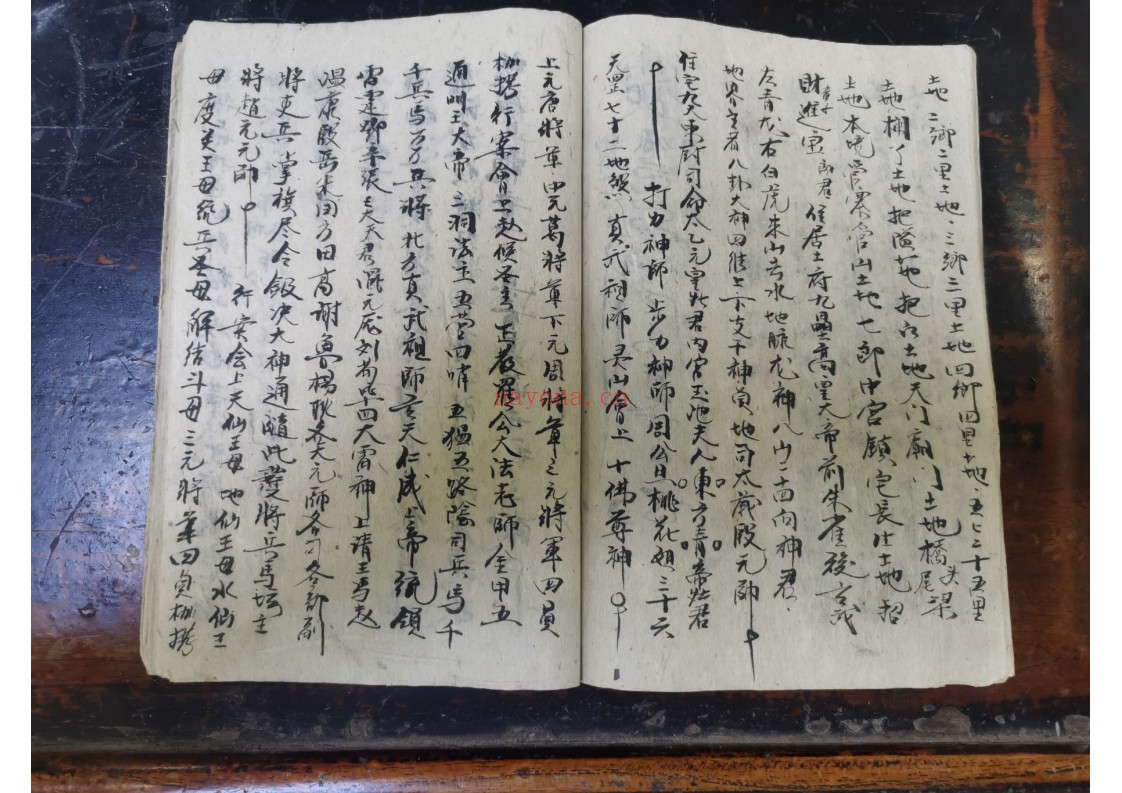 土地 二鄉二里土地 三鄉三里土地四鄉四里土地 五七二十五里
土地棚丁土地把隘土地把水土地天門廟門土地橋頭梁
尾
土地本境管界官山土地七郎中宮鎮宅長生土地招
財童子進宝郎君 住居土府九壘高皇大帝前朱雀後玄武
左青龙右白虎来山去水地脉龙神八山二十四向神君
地界 八卦大神四維上下支干神員地司太歲殷元帥
住宅九天東厨司命太乙元皇灶君内宮玉池夫人東方青帝灶君
打力神師 步力神師周公旦桃花姐三十六
天罡七十二地煞 真武祖師灵山會上十佛尊神
上元唐將軍中元葛將軍下元周將軍三元將軍四員
枷拷行案會上 正教 公大法老師金甲五
通明王大帝 三洞法主五营四哨 五猖五路陰司兵馬千
千兵馬万万兵將 北方真武祖師玄天仁威上帝統領
雷霆鄧辛張三大天君混元龙刘苟畢四大雷神上請王馬赵
温康殷岳朱 方田高謝魯楊耿 大元帥各司各部副
將吏兵掌旗 令 大神通随此護將兵馬坛主
將趙元元帥 行案会上天仙王母地仙王母水仙王
母度关王母統兵圣母解結斗母三元將軍四員枷拷
nayona.cn